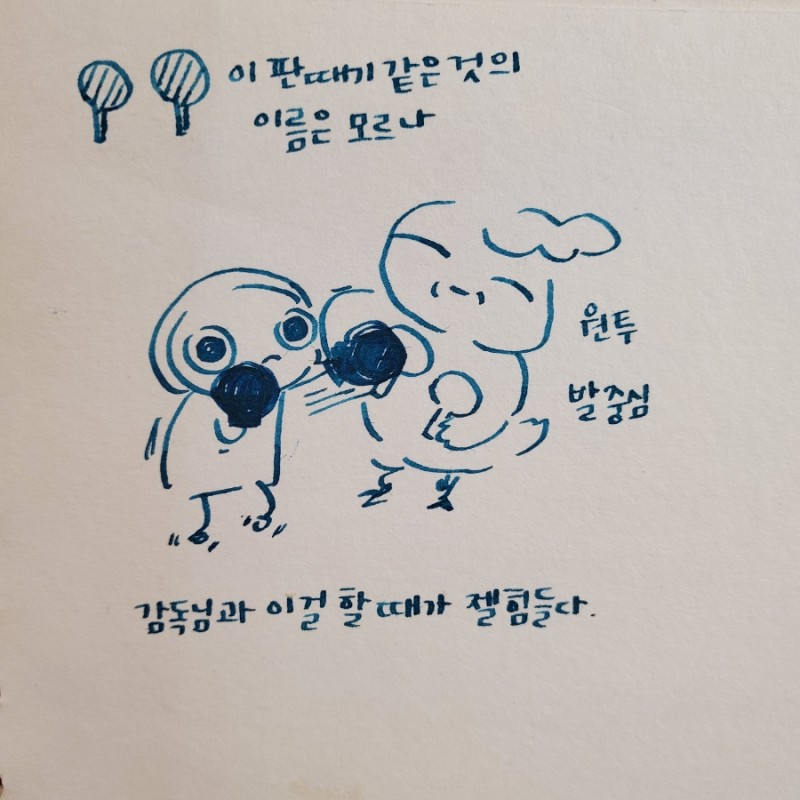 이 판때기 같은 것의
이름은 모르나
원투
발중심
감독님과 이걸 할 때가 젤 힘들다.